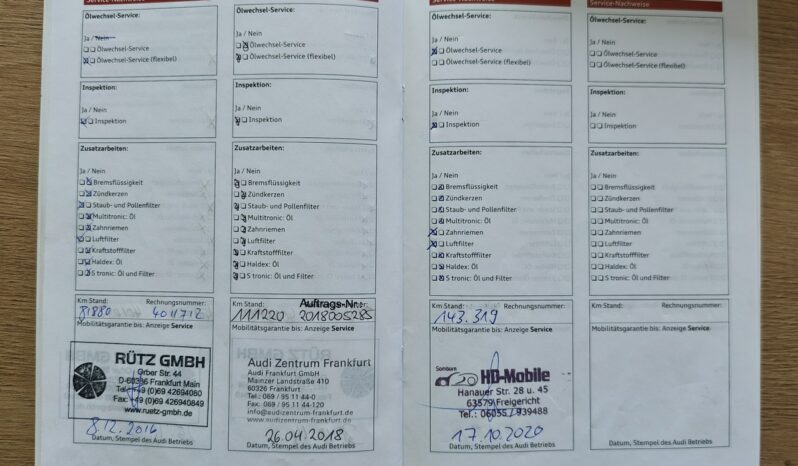 Service-Nachweise
Ölwechsel-Service:
Ja / Nein
Ölwechsel-Service
Ölwechsel-Service (flexibel)
Inspektion:
Ja / Nein
Inspektion
Zusatzarbeiten:
Ja / Nein
Bremsflüssigkeit
Zündkerzen
Staub- und Pollenfilter
Multitronic: Öl
Zahnriemen
Luftfilter
Kraftstofffilter
Haldex: Öl
S tronic: Öl und Filter
Km Stand: Rechnungsnummer:
81880 4011712
Mobilitätsgarantie bis: Anzeige Service
RÜTZ GMBH
Orber Str. 44
D-60386 Frankfurt Main
Tel.: +49 (0)69 42694080
Fax: +49 (0)69 426940849
www.ruetz-gmbh.de
8.12.2016
Datum, Stempel des Audi Betriebs
Ölwechsel-Service:
Ja / Nein
Ölwechsel-Service
Ölwechsel-Service (flexibel)
Inspektion:
Ja / Nein
Inspektion
Zusatzarbeiten:
Ja / Nein
Bremsflüssigkeit
Zündkerzen
Staub- und Pollenfilter
Multitronic: Öl
Zahnriemen
Luftfilter
Kraftstofffilter
Haldex: Öl
S tronic: Öl und Filter
Km Stand: Auftrags-Nr.:
111220 2018005285
Mobilitätsgarantie bis: Anzeige Service
Audi Zentrum Frankfurt
Audi Frankfurt GmbH
Mainzer Landstraße 410
60326 Frankfurt
Tel.: 069 / 95 11 44-0
Fax: 069 / 95 11 44-120
info@audizentrum-frankfurt.de
www.audizentrum-frankfurt.de
26.04.2018
Datum, Stempel des Audi Betriebs
Service-Nachweise
Ölwechsel-Service:
Ja / Nein
Ölwechsel-Service
Ölwechsel-Service (flexibel)
Inspektion:
Ja / Nein
Inspektion
Zusatzarbeiten:
Ja / Nein
Bremsflüssigkeit
Zündkerzen
Staub- und Pollenfilter
Multitronic: Öl
Zahnriemen
Luftfilter
Kraftstofffilter
Haldex: Öl
S tronic: Öl und Filter
Km Stand: Rechnungsnummer:
143.319
Mobilitätsgarantie bis: Anzeige Service
HD-Mobile
Hanauer Str. 28 u. 45
63579 Freigericht
Tel.: 06055 / 939488
17.10.2020
Datum, Stempel des Audi Betriebs
Service-Nachweise
Ölwechsel-Service:
Ja / Nein
Ölwechsel-Service
Ölwechsel-Service (flexibel)
Inspektion:
Ja / Nein
Inspektion
Zusatzarbeiten:
Ja / Nein
Bremsflüssigkeit
Zündkerzen
Staub- und Pollenfilter
Multitronic: Öl
Zahnriemen
Luftfilter
Kraftstofffilter
Haldex: Öl
S tronic: Öl und Filter
Km Stand: Rechnungsnummer:
Mobilitätsgarantie bis: Anzeige Service
Datum, Stempel des Audi Betriebs